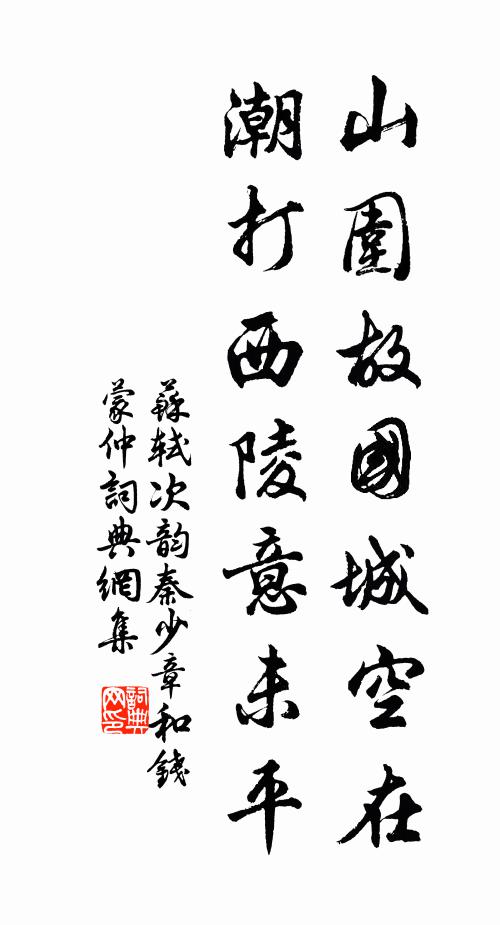 山圍故國城空在
潮打西陵意未平
蘇軾次韵秦少章和錢
蒙仲詞典網集
詞典
网印